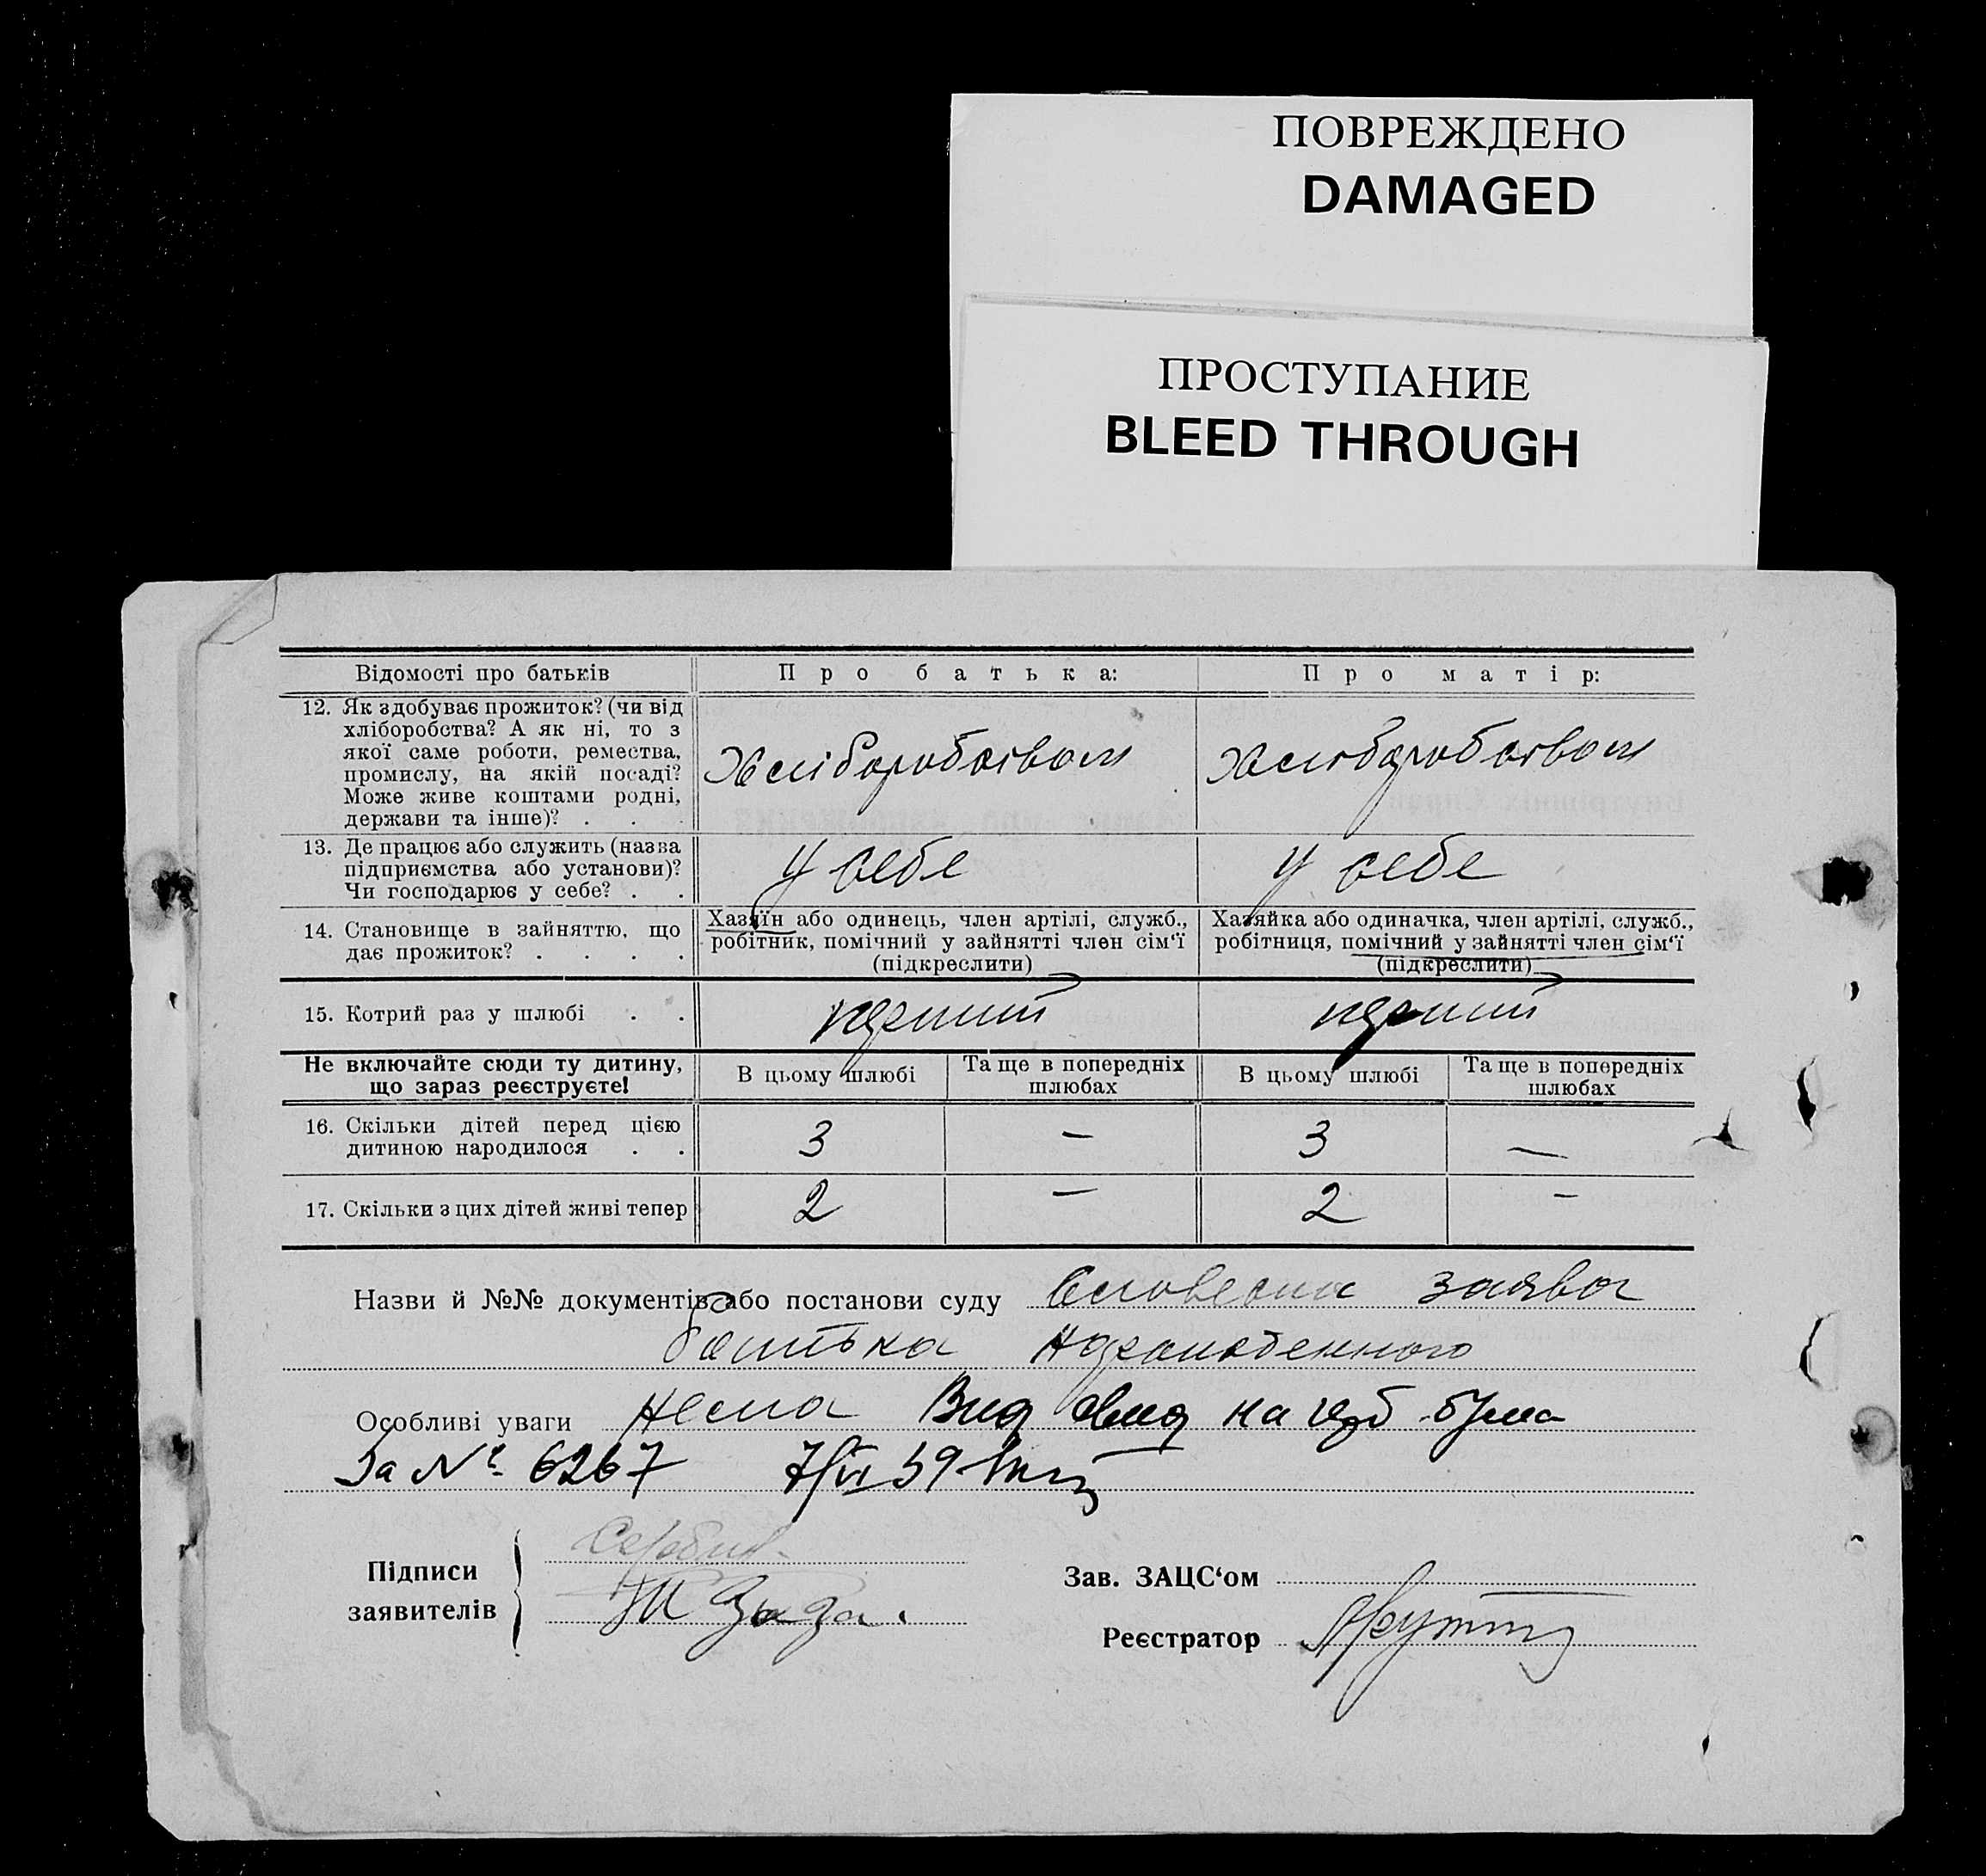 ПОВРЕЖДЕНО
DAMAGED
ПРОСТУПАНИЕ
BLEED THROUGH
Відомості про батьків
Про батька:
Про матір:
12. Як здобуває прожиток? (чи від
хліборобства? А як ні, то з
якої саме роботи, ремества,
промислу, на якій посаді?
Може живе коштами родні,
держави та інше)? . . .
Хліборобством
Хліборобством
13. Де працює або служить (назва
підприємства або установи)?
Чи господарює у себе? . .
У себе
У себе
14. Становище в зайняттю, що
дає прожиток? . . . .
Хазяїн або одинець, член артілі, служб.,
робітник, помічний у зайнятті член сім'ї
(підкреслити)
Хазяйка або одиначка, член артілі, служб.,
робітниця, помічний у зайнятті член сім'ї
(підкреслити)
15. Котрий раз у шлюбі . .
перший
перший
Не включайте сюди ту дитину,
що зараз реєструєте!
В цьому шлюбі
Та ще в попередніх
шлюбах
В цьому шлюбі
Та ще в попередніх
шлюбах
16. Скільки дітей перед цією
дитиною народилося . .
3 — 3 —
17. Скільки з цих дітей живі тепер
2 — 2 —
Назви й №№ документів або постанови суду Словесна заява
батька
Особливі уваги Нема на
За № 6267 7/VI 39
Підписи
заявителів
Зав. ЗАЦС'ом
Реєстратор